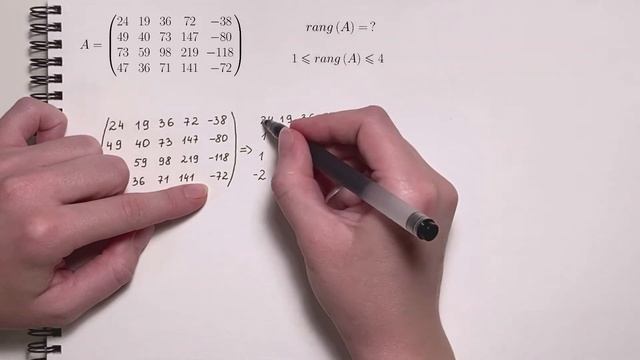 A = ( 24 19 36 72 −38 )
49 40 73 147 −80
73 59 98 219 −118
47 36 71 141 −72
rang (A) = ?
1 ⩽ rang (A) ⩽ 4
24 19 36 72 -38 24 19 36
49 40 73 147 -80 =>
59 98 219 -118 1
36 71 141 -72 -2